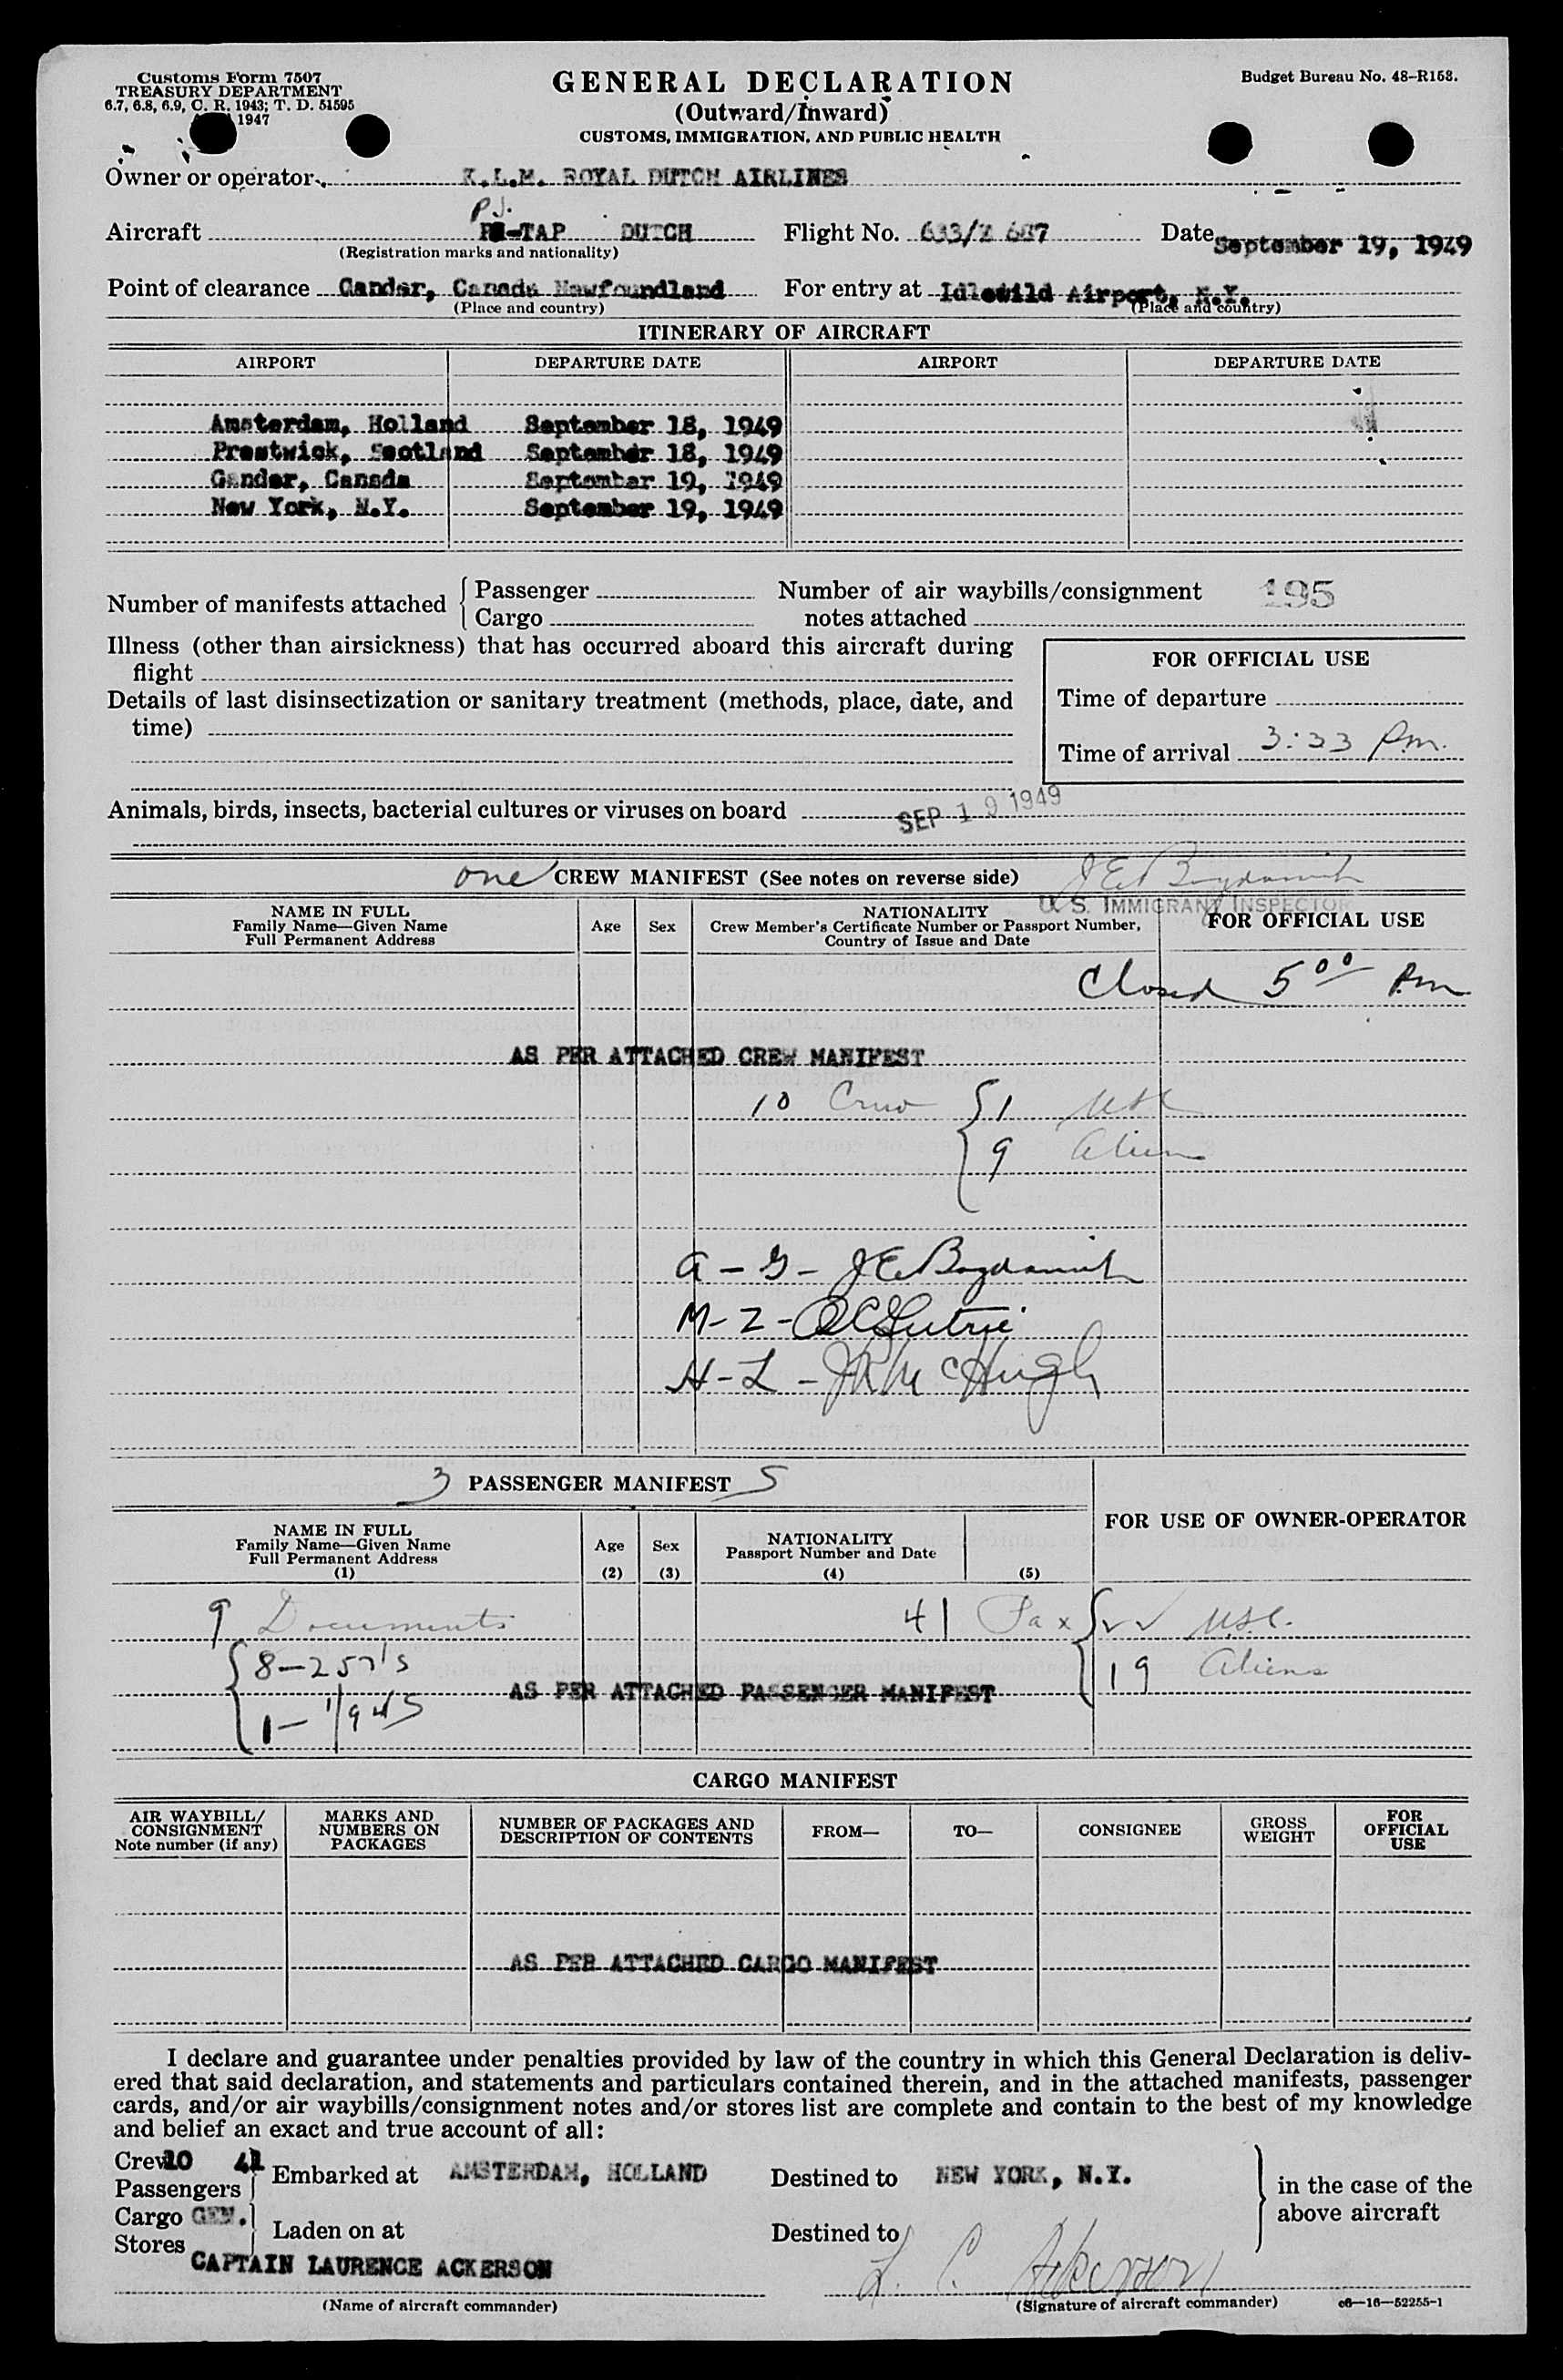 Customs Form 7507
TREASURY DEPARTMENT
6.7, 6.8, 6.9, C. R. 1943; T. D. 51595
1947
GENERAL DECLARATION
(Outward/Inward)
CUSTOMS, IMMIGRATION, AND PUBLIC HEALTH
Budget Bureau No. 48-R158.
Owner or operator K.L.M. ROYAL DUTCH AIRLINES
PJ.
Aircraft -TAP DUTCH Flight No. 633/ Date September 19, 1949
(Registration marks and nationality)
Point of clearance Gander, Canada Newfoundland For entry at Idlewild Airport, N.Y.
(Place and country) (Place and country)
ITINERARY OF AIRCRAFT
AIRPORT DEPARTURE DATE AIRPORT DEPARTURE DATE
Amsterdam, Holland September 18, 1949
Prestwick, Scotland September 18, 1949
Gander, Canada September 19, 1949
New York, N.Y. September 19, 1949
Number of manifests attached { Passenger Number of air waybills/consignment 195
Cargo notes attached
Illness (other than airsickness) that has occurred aboard this aircraft during
flight
Details of last disinsectization or sanitary treatment (methods, place, date, and
time)
FOR OFFICIAL USE
Time of departure
Time of arrival 3:33 P.m.
Animals, birds, insects, bacterial cultures or viruses on board SEP 19 1949
one CREW MANIFEST (See notes on reverse side)
U.S. IMMIGRANT INSPECTOR
NAME IN FULL
Family Name—Given Name
Full Permanent Address
Age
Sex
NATIONALITY
Crew Member's Certificate Number or Passport Number,
Country of Issue and Date
FOR OFFICIAL USE
Closed 5 00 Pm
AS PER ATTACHED CREW MANIFEST
10 Crew { 1 USC
9 Aliens
A - G -
M - Z -
H - L - JR McHugh
3 PASSENGER MANIFEST S
FOR USE OF OWNER-OPERATOR
NAME IN FULL
Family Name—Given Name
Full Permanent Address
(1)
Age
(2)
Sex
(3)
NATIONALITY
Passport Number and Date
(4)
(5)
9 Documents 41 Pax { 22 USC.
{ 8 - 257's 19 Aliens
AS PER ATTACHED PASSENGER MANIFEST
1 -
CARGO MANIFEST
AIR WAYBILL/
CONSIGNMENT
Note number (if any)
MARKS AND
NUMBERS ON
PACKAGES
NUMBER OF PACKAGES AND
DESCRIPTION OF CONTENTS
FROM—
TO—
CONSIGNEE
GROSS
WEIGHT
FOR
OFFICIAL
USE
AS PER ATTACHED CARGO MANIFEST
I declare and guarantee under penalties provided by law of the country in which this General Declaration is deliv-
ered that said declaration, and statements and particulars contained therein, and in the attached manifests, passenger
cards, and/or air waybills/consignment notes and/or stores list are complete and contain to the best of my knowledge
and belief an exact and true account of all:
Crew 10 41
Passengers } Embarked at AMSTERDAM, HOLLAND Destined to NEW YORK, N.Y. } in the case of the
above aircraft
Cargo GEN.
Stores } Laden on at Destined to
CAPTAIN LAURENCE ACKERSON L. C. Ackerson
(Name of aircraft commander) (Signature of aircraft commander) c6—16—52255-1